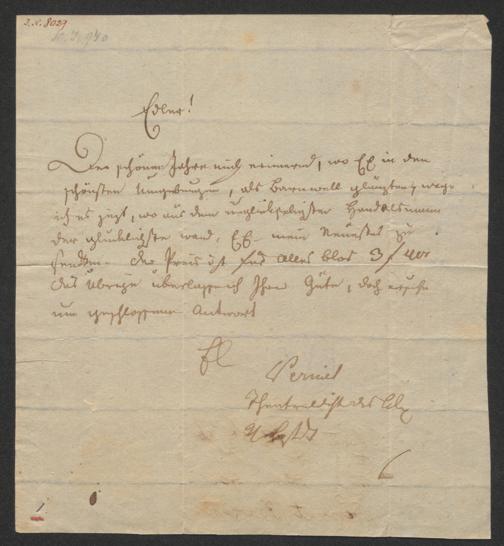 I.N. 8029
Edler!
Der schönen Jahre mich erinnernd, wo EE in den
schönsten Umgebungen, als Barnwell glänzten, wage
ich es jezt, wo aus dem unglükseligsten Handelsmann
der glücklichste ward, EE mein Neuestes zu
senden. Der Preis ist für alles blos 3 f
das Übrige überlasse ich Ihrer Güte, doch ersuche
um geschlossene Antwort
Perinet
Theaterdichter des
1